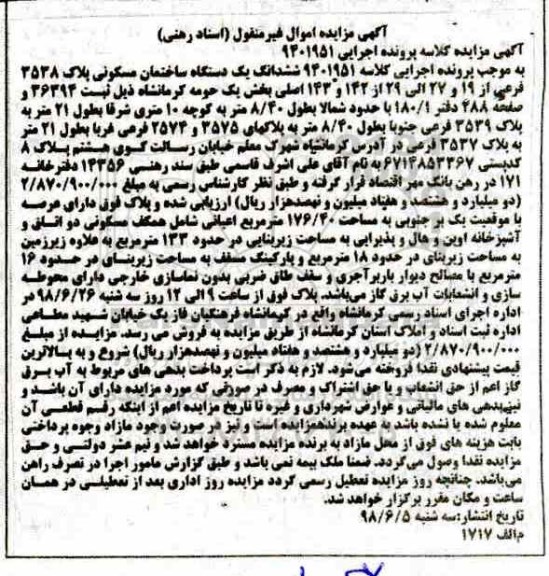 آگهی مزایده اموال غیرمنقول (اسناد رهنی)
آگهی مزایده کلاسه پرونده اجرایی ۹۴۰۱۹۵۱
به موجب پرونده اجرایی کلاسه ۹۴۰۱۹۵۱ ششدانگ یک دستگاه ساختمان مسکونی پلاک ۳۵۳۸
فرعی از ۱۹ و ۲۷ الی ۲۹ از ۱۴۲ و ۱۴۳ اصلی بخش یک حومه کرمانشاه ذیل ثبت ۳۶۳۹۴ و
صفحه ۴۸۸ دفتر ۱۸۰/۱ با حدود شمالا بطول ۸/۴۰ متر به کوچه ۱۰ متری شرقا بطول ۲۱ متر به
پلاک ۳۵۳۹ فرعی جنوبا بطول ۸/۴۰ متر به پلاکهای ۳۵۷۵ و ۳۵۷۴ فرعی غربا بطول ۲۱ متر
به پلاک ۳۵۳۷ فرعی در آدرس کرمانشاه شهرک معلم خیابان رسالت کوی هشتم پلاک ۸
کدپستی ۶۷۱۴۸۵۳۳۶۷ به نام آقای علی اشرف قاسمی طبق سند رهنی ۱۴۳۵۶ دفترخانه
۱۷۱ در رهن بانک مهر اقتصاد قرار گرفته و طبق نظر کارشناس رسمی به مبلغ ۲/۸۷۰/۹۰۰/۰۰۰
(دو میلیارد و هشتصد و هفتاد میلیون و نهصدهزار ریال) ارزیابی شده و پلاک فوق دارای عرصه
با موقعیت یک بر جنوبی به مساحت ۱۷۶/۴۰ مترمربع اعیانی شامل همکف مسکونی دو اتاق و
آشپزخانه اوپن و هال و پذیرایی به مساحت زیربنایی در حدود ۱۳۳ مترمربع به علاوه زیرزمین
به مساحت زیربنای در حدود ۱۸ مترمربع و پارکینگ مسقف به مساحت زیربنای در حدود ۱۶
مترمربع با مصالح دیوار باربر آجری و سقف طاق ضربی بدون نماسازی خارجی دارای محوطه
سازی و انشعابات آب برق گاز می‌باشد. پلاک فوق از ساعت ۹ الی ۱۲ روز سه شنبه ۹۸/۶/۲۶ در
اداره اجرای اسناد رسمی کرمانشاه واقع در کرمانشاه فرهنگیان فاز یک خیابان شهید مطاعی
اداره ثبت اسناد و املاک استان کرمانشاه از طریق مزایده به فروش می رسد. مزایده از مبلغ
۲/۸۷۰/۹۰۰/۰۰۰ (دو میلیارد و هشتصد و هفتاد میلیون و نهصدهزار ریال) شروع و به بالاترین
قیمت پیشنهادی نقدا فروخته می‌شود. لازم به ذکر است پرداخت بدهی های مربوط به آب برق
گاز اعم از حق انشعاب و یا حق اشتراک و مصرف در صورتی که مورد مزایده دارای آن باشد و
نیز بدهی های مالیاتی و عوارض شهرداری و غیره تا تاریخ مزایده اعم از اینکه رقم قطعی آن
معلوم شده یا نشده باشد به عهده برنده مزایده است و نیز در صورت وجود مازاد وجوه پرداختی
بابت هزینه های فوق از محل مازاد به برنده مزایده مسترد خواهد شد و نیم عشر دولتی و حق
مزایده نقدا وصول می‌گردد. ضمنا ملک بیمه نمی باشد و طبق گزارش مامور اجرا در تصرف راهن
می‌باشد. چنانچه روز مزایده تعطیل رسمی گردد مزایده روز اداری بعد از تعطیلی در همان
ساعت و مکان مقرر برگزار خواهد شد.
تاریخ انتشار: سه شنبه ۹۸/۶/۵
م الف ۱۷۱۷